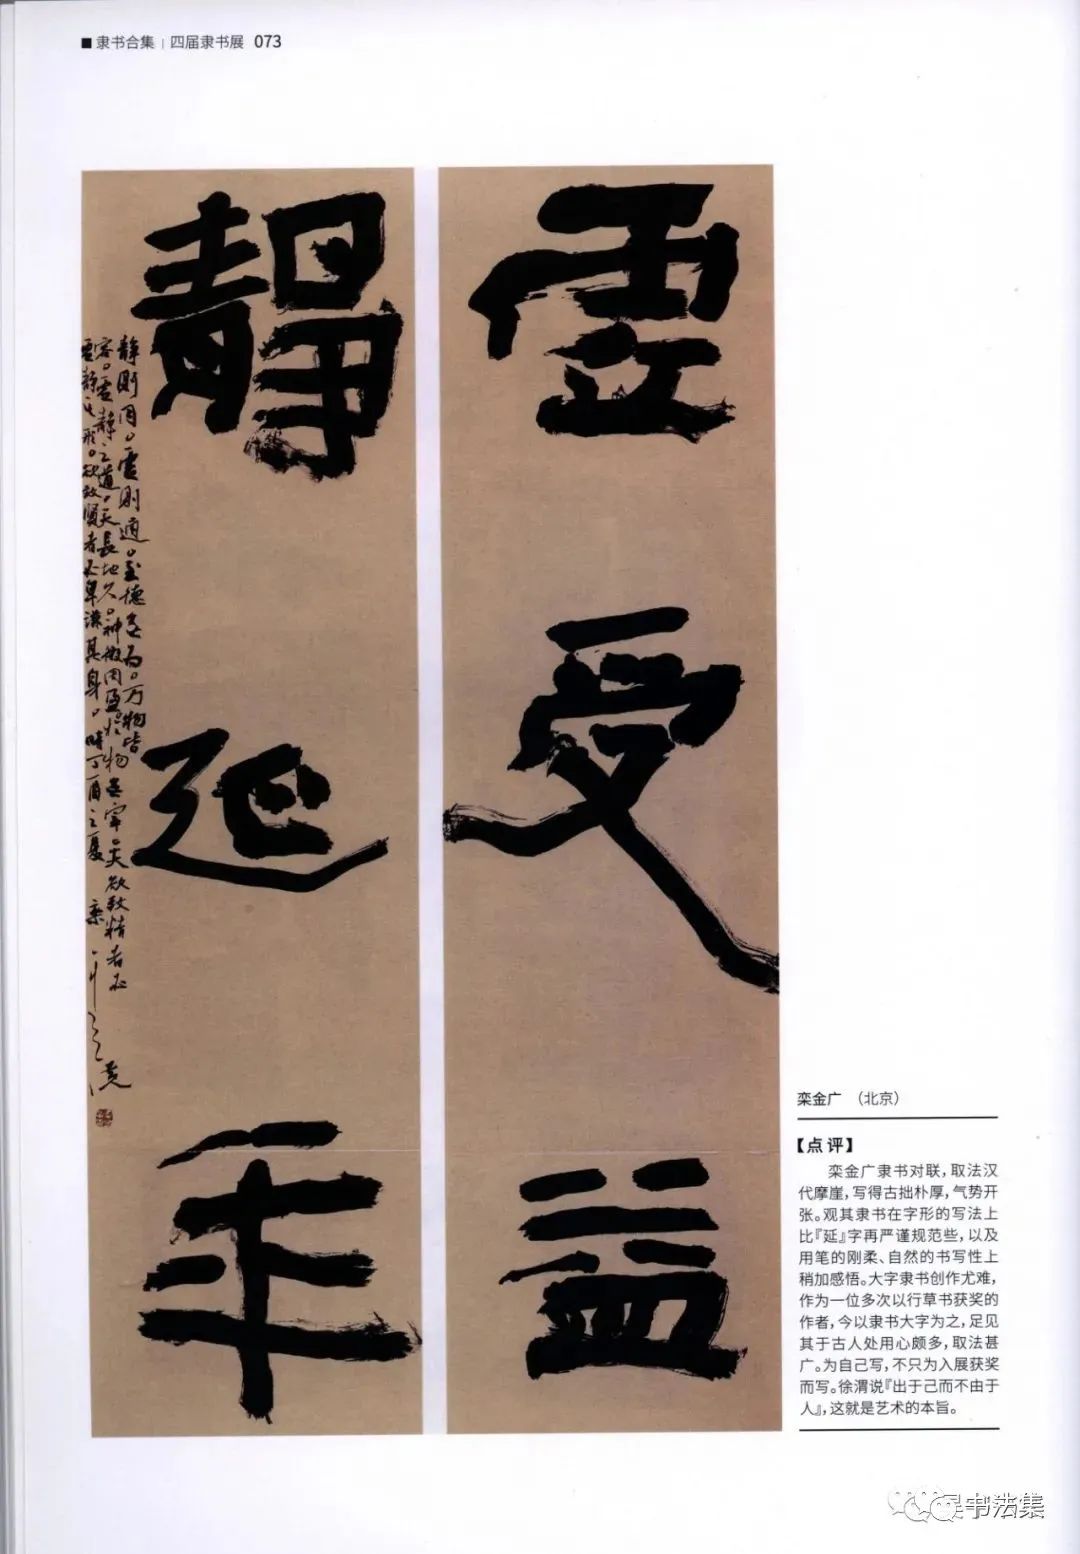 ■隶书合集 | 四届隶书展 073
虚受益
静延年
静则同。虚则通。至德无为。万物皆
容。虚静之道。天長地久。神微周盈於物無穷。夫欲致精者必
虚静其形。欲求賢者必卑謙其身。時丁酉之夏 栾
栾金广 （北京）
【点评】
栾金广隶书对联，取法汉
代摩崖，写得古拙朴厚，气势开
张。观其隶书在字形的写法上
比『延』字再严谨规范些，以及
用笔的刚柔、自然的书写性上
稍加感悟。大字隶书创作尤难，
作为一位多次以行草书获奖的
作者，今以隶书大字为之，足见
其于古人处用心颇多，取法甚
广。为自己写，不只为入展获奖
而写。徐渭说『出于己而不由于
人』，这就是艺术的本旨。
书法集